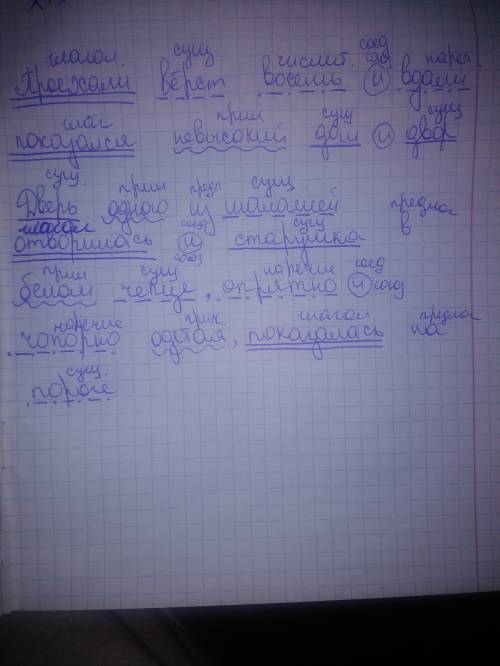 глагол. сущ числит. соед союз нареч.
Проехали вёрст восемь и вдали
глаг прил сущ сущ
показался невысокий дом и двор
сущ. прил предл сущ
Дверь одного из шалашей
глагол соед союз сущ предлог
отворилась и старушка в
прил сущ наречие соед
белом чепце, опрятно и союз
наречие прич. глагол предлог
чопорно одетая, показалась на
сущ.
пороге